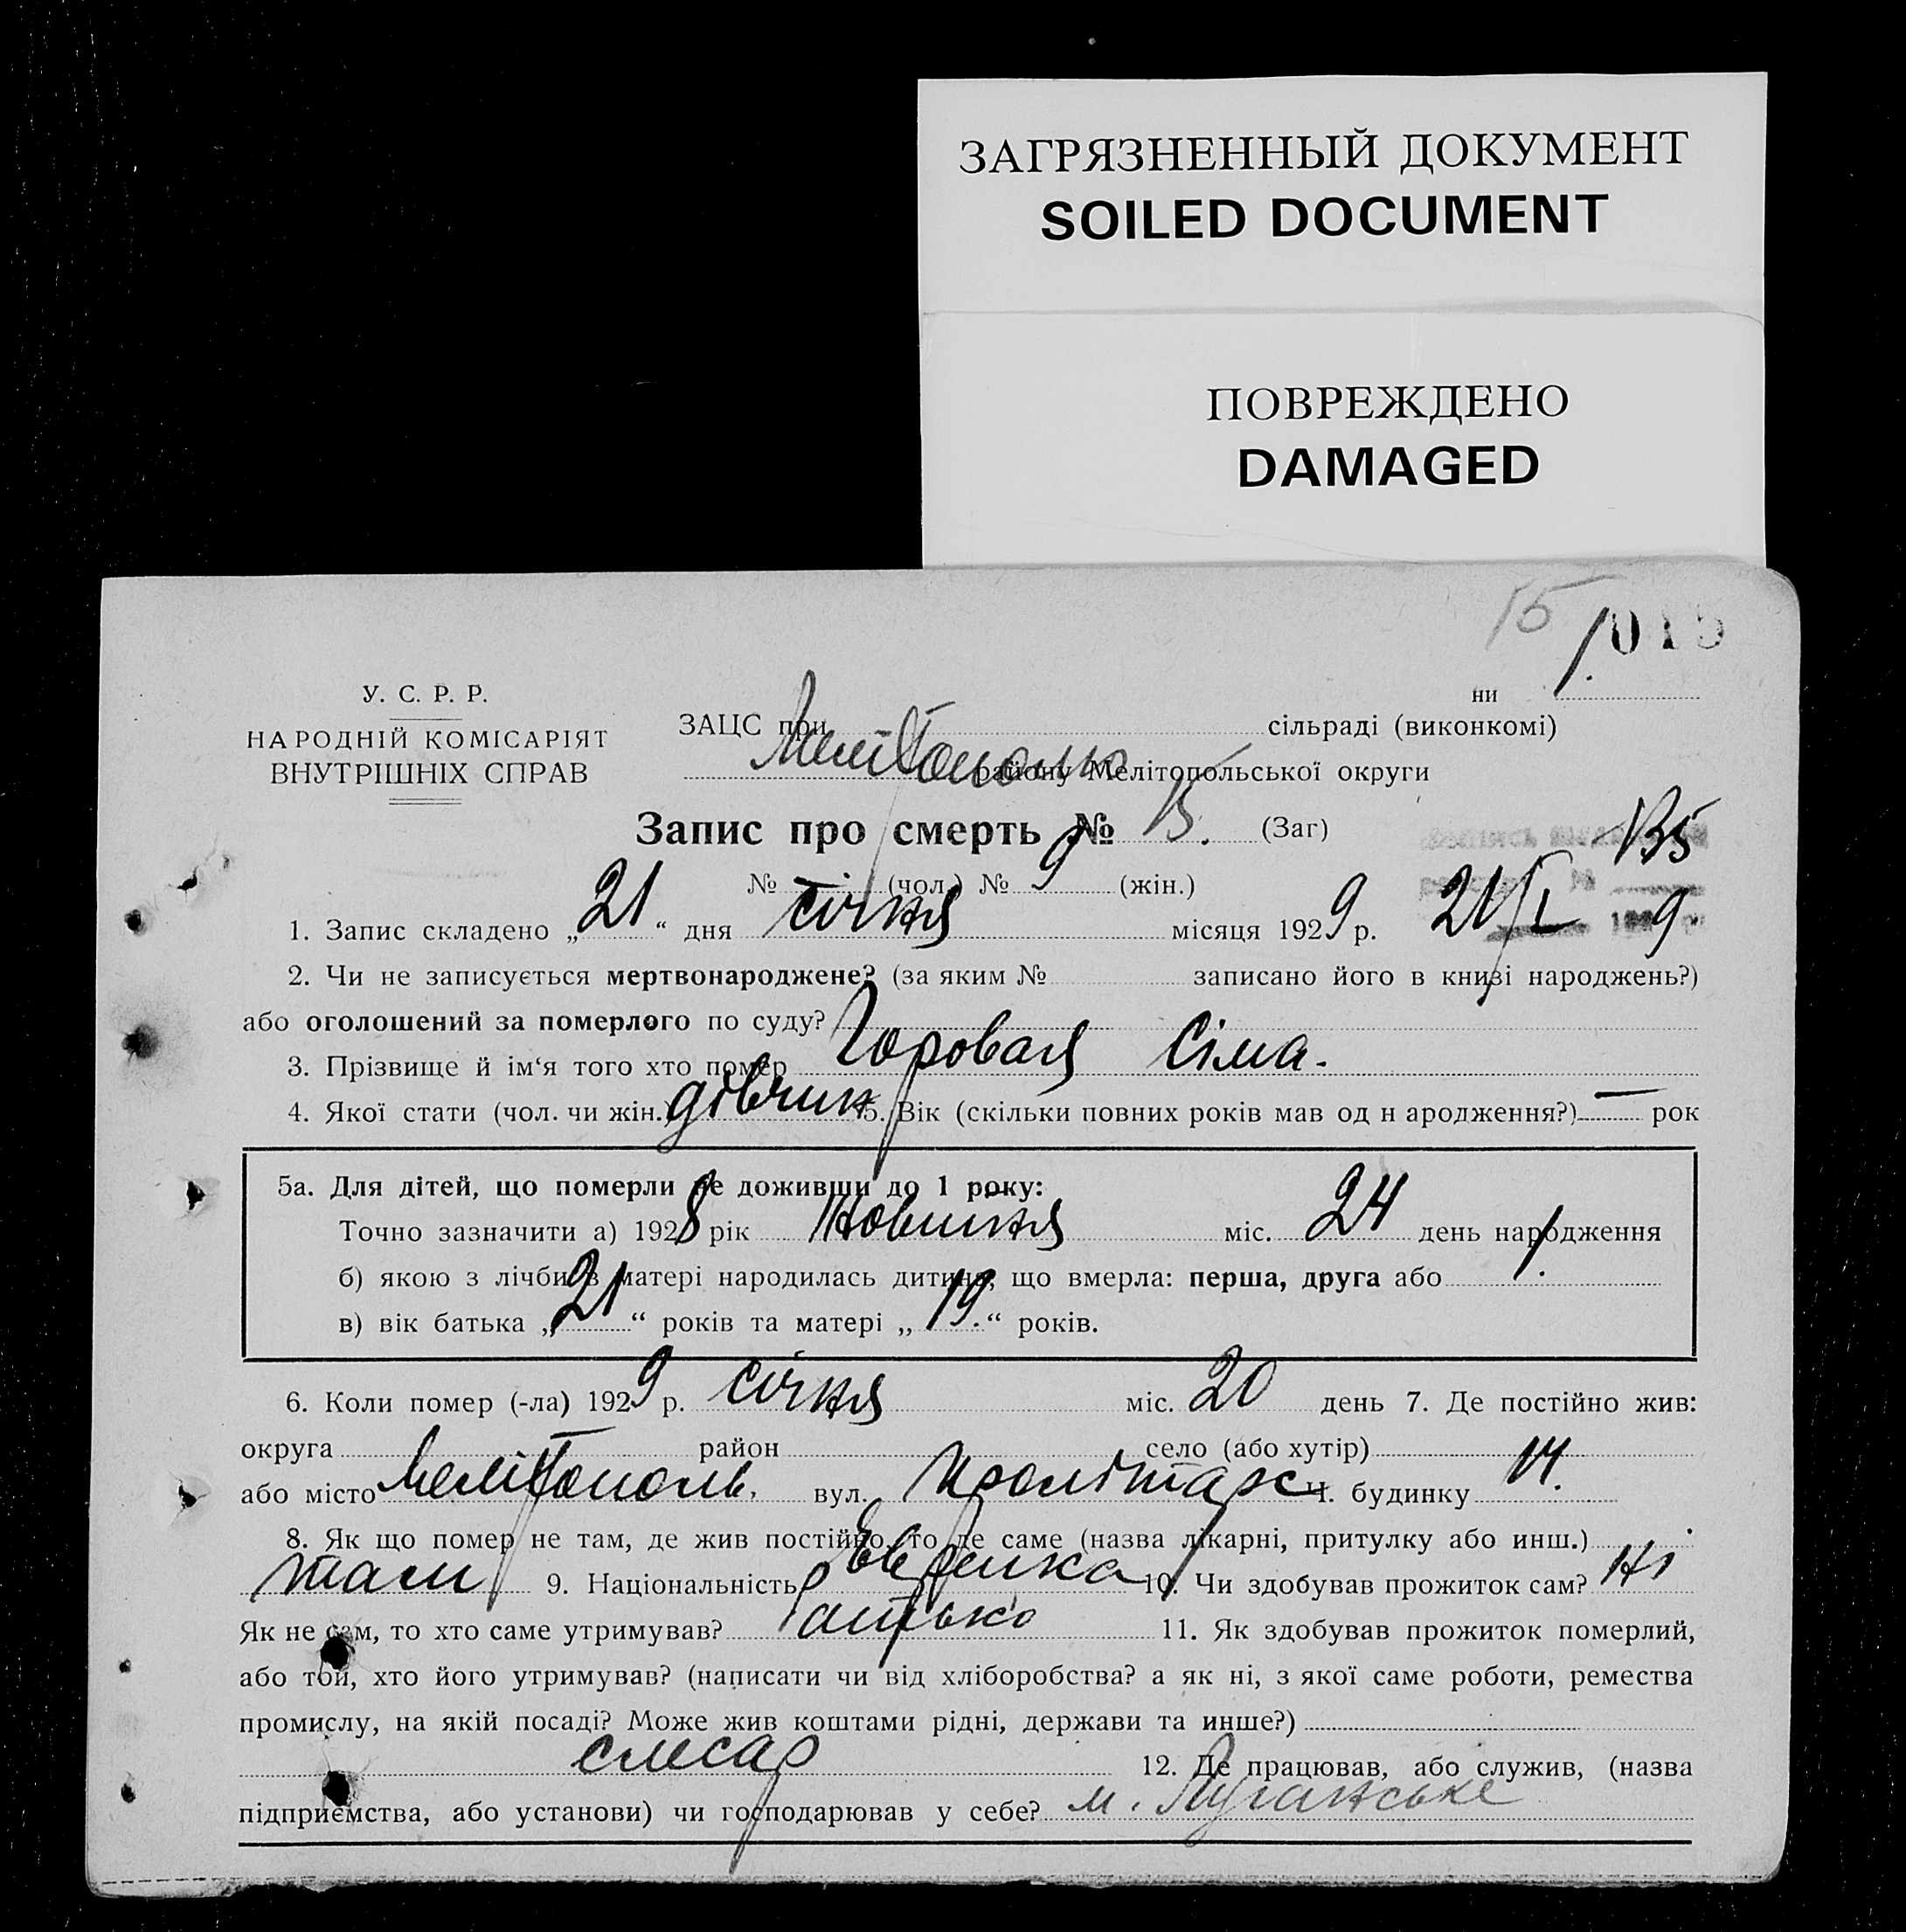 ЗАГРЯЗНЕННЫЙ ДОКУМЕНТ
SOILED DOCUMENT
ПОВРЕЖДЕНО
DAMAGED
15
015
ни 1.
У. С. Р. Р.
НАРОДНІЙ КОМІСАРІЯТ
ВНУТРІШНІХ СПРАВ
ЗАЦС при сільраді (виконкомі)
району Мелітопольської округи
Запис про смерть № 15. (Заг)
135
№ (чол.) № 9 (жін.)
1. Запис складено „21“ дня січня місяця 1929 р. 21/I 9
2. Чи не записується мертвонароджене? (за яким № записано його в книзі народжень?)
або оголошений за померлого по суду?
3. Прізвище й ім‘я того хто помер Горовая Сіма.
4. Якої стати (чол. чи жін.) дівчин 5. Вік (скільки повних років мав од н ародження?) — рок
5а. Для дітей, що померли не доживши до 1 року:
Точно зазначити а) 1928 рік Новиння міс. 24 день народження
б) якою з лічби в матері народилась дитина, що вмерла: перша, друга або 1.
в) вік батька „21“ років та матері „19.“ років.
6. Коли помер (-ла) 1929 р. січня міс. 20 день 7. Де постійно жив:
округа район село (або хутір)
або місто Мелітополь, вул. Пролітарс Ч. будинку 14.
8. Як що помер не там, де жив постійно, то де саме (назва лікарні, притулку або инш.)
там 9. Національність Еврейка 10. Чи здобував прожиток сам? Ні
Як не сам, то хто саме утримував? батько 11. Як здобував прожиток померлий,
або той, хто його утримував? (написати чи від хліборобства? а як ні, з якої саме роботи, ремества
промислу, на якій посаді? Може жив коштами рідні, держави та инше?)
слюсар 12. Де працював, або служив, (назва
підприємства, або установи) чи господарював у себе? м. Луганське